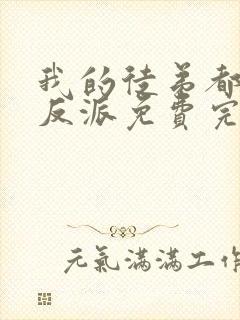 我的徒弟都
反派免費完
元氣滿滿工作